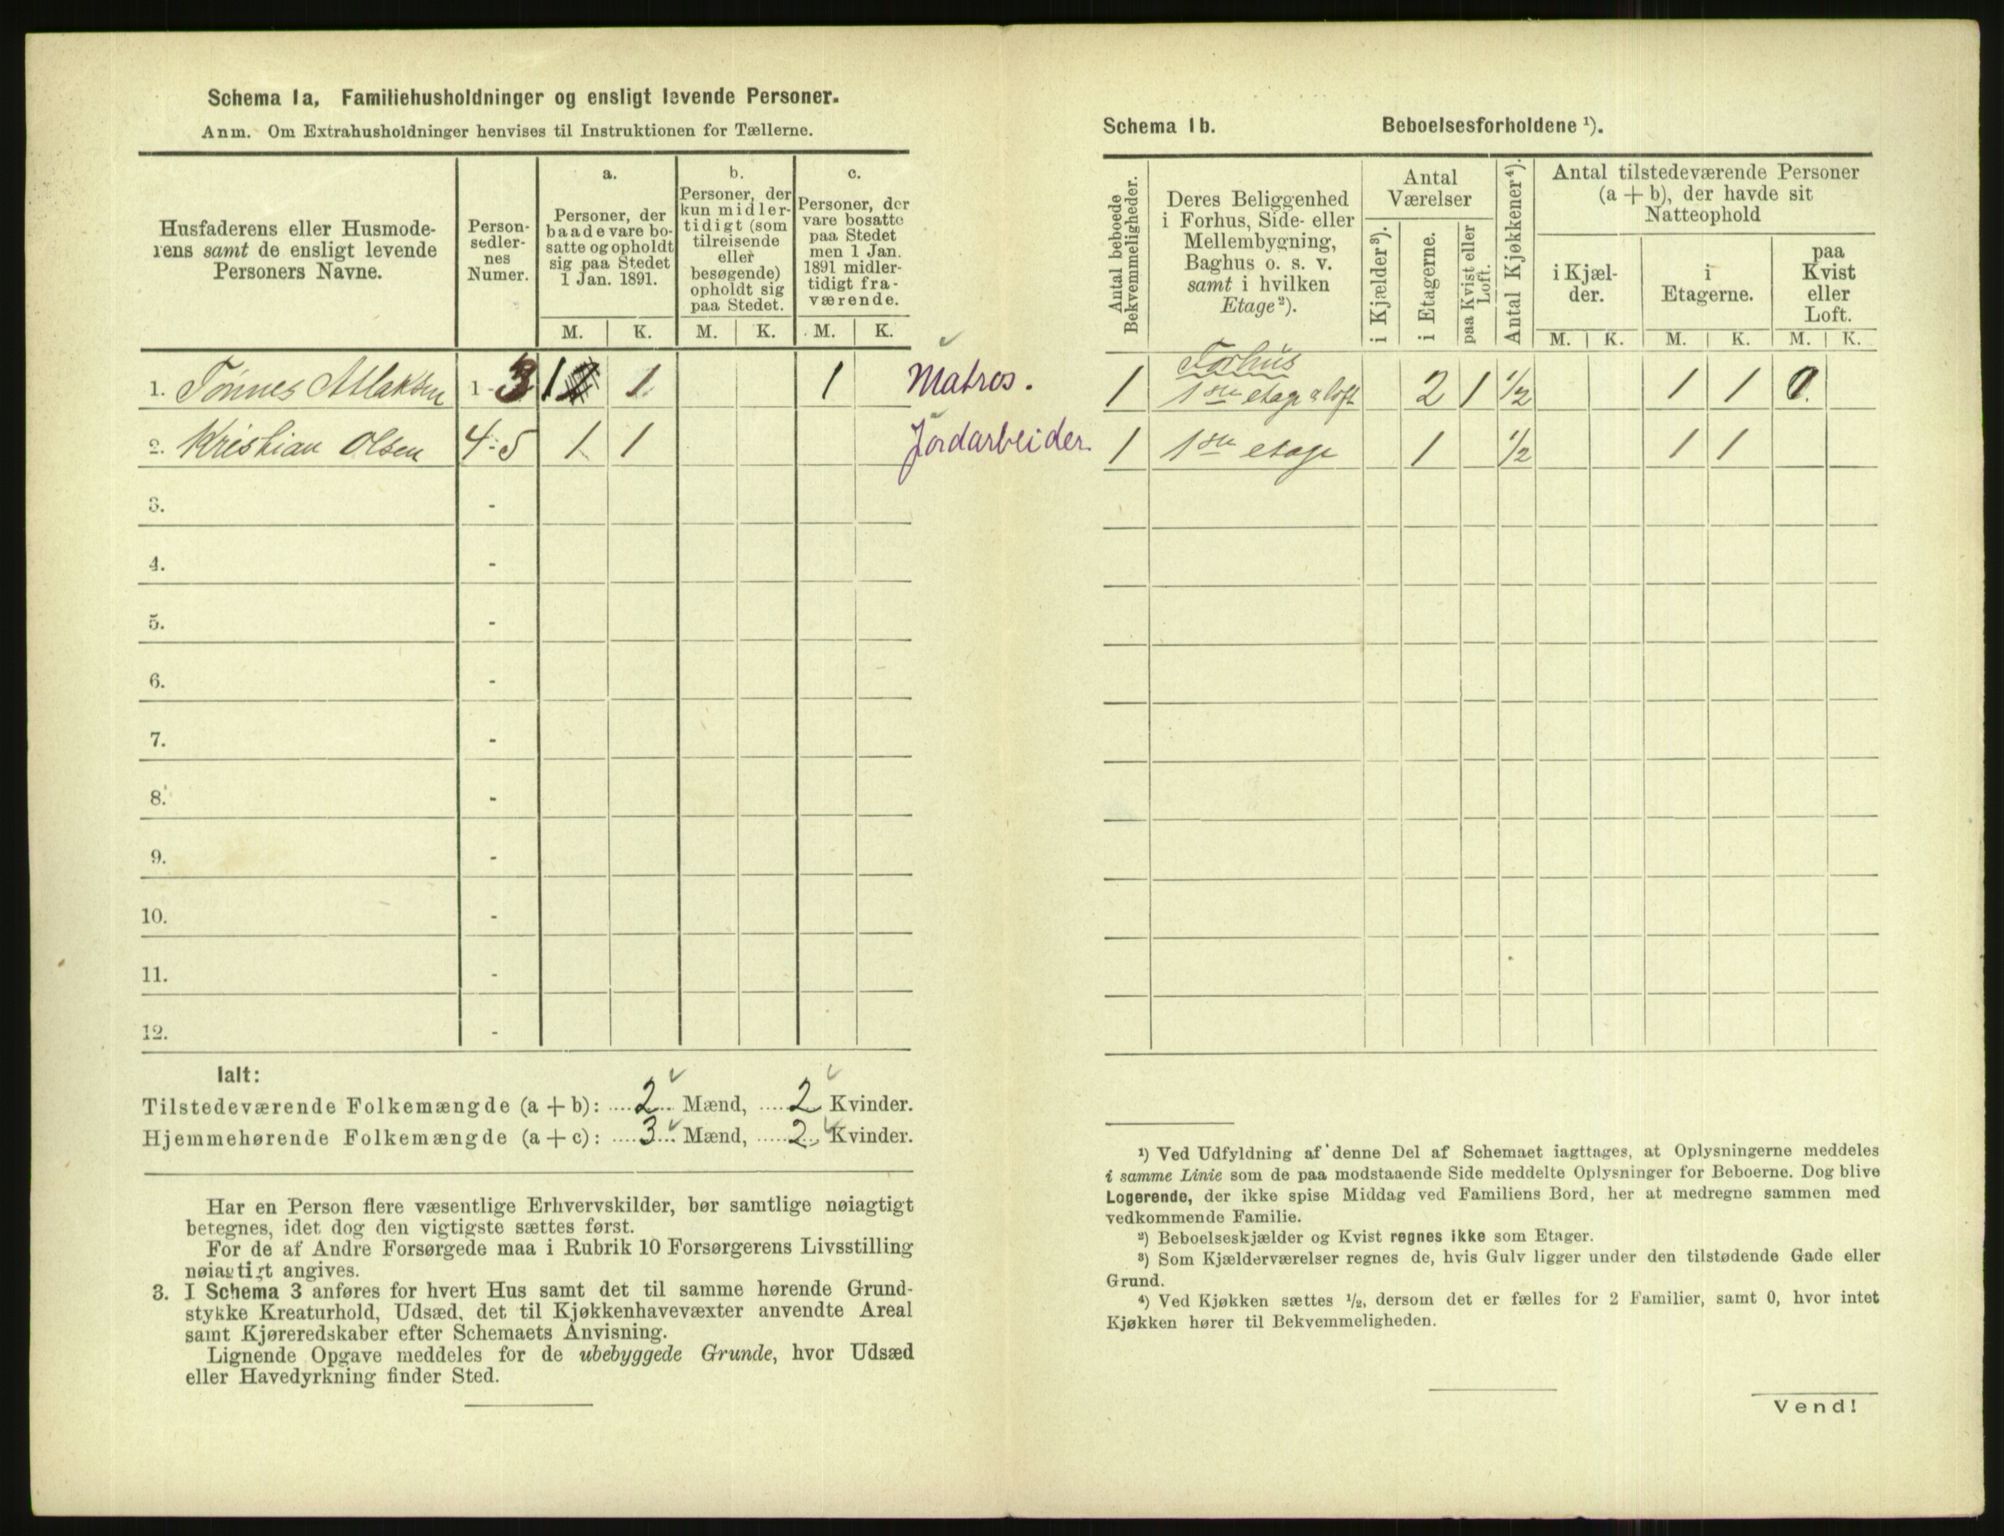 Schema 1a, Familiehusholdninger og ensligt levende Personer.
Anm. Om Extrahusholdninger henvises til Instruktionen for Tællerne.
Husfaderens eller Husmode-
rens samt de ensligt levende
Personers Navne.
Person-
sedler-
nes
Numer.
a.
Personer, der
baade vare bo-
satte og opholdt
sig paa Stedet
1 Jan. 1891.
b.
Personer, der
kun midler-
tidigt (som
tilreisende
eller
besøgende)
opholdt sig
paa Stedet.
c.
Personer, der
vare bosatte
paa Stedet
men 1 Jan.
1891 midler-
tidigt fra-
værende.
M. K. M. K. M. K.
1. Tønnes Atlaksen 1-3 1 1 1 Matros.
2. Kristian Olsen 4-5 1 1 Jordarbeider.
3. -
4. -
5. -
6. -
7. -
8. -
9. -
10. -
11. -
12. -
Ialt:
Tilstedeværende Folkemængde (a + b): 2 Mænd, 2 Kvinder.
Hjemmehørende Folkemængde (a + c): 3 Mænd, 2 Kvinder.
Har en Person flere væsentlige Erhvervskilder, bør samtlige nøiagtigt
betegnes, idet dog den vigtigste sættes først.
For de af Andre Forsørgede maa i Rubrik 10 Forsørgerens Livsstilling
nøiagtigt angives.
3. I Schema 3 anføres for hvert Hus samt det til samme hørende Grund-
stykke Kreaturhold, Udsæd, det til Kjøkkenhavevæxter anvendte Areal
samt Kjøreredskaber efter Schemaets Anvisning.
Lignende Opgave meddeles for de ubebyggede Grunde, hvor Udsæd
eller Havedyrkning finder Sted.
Schema 1b. Beboelsesforholdene ¹).
Antal beboede
Bekvemmeligheder.
Deres Beliggenhed
i Forhus, Side- eller
Mellembygning,
Baghus o. s. v.
samt i hvilken
Etage²).
Antal
Værelser
i Kjælder³).
i Etagerne.
paa Kvist eller
Loft.
Antal Kjøkkener⁴).
Antal tilstedeværende Personer
(a + b), der havde sit
Natteophold
i Kjæl-
der.
i
Etagerne.
paa
Kvist
eller
Loft.
M. K. M. K. M. K.
Forhus
1 1ste etage o loft 2 1 ½ 1 1 0.
1 1ste etage 1 ½ 1 1
¹) Ved Udfyldning af denne Del af Schemaet iagttages, at Oplysningerne meddeles
i samme Linie som de paa modstaaende Side meddelte Oplysninger for Beboerne. Dog blive
Logerende, der ikke spise Middag ved Familiens Bord, her at medregne sammen med
vedkommende Familie.
²) Beboelseskjælder og Kvist regnes ikke som Etager.
³) Som Kjælderværelser regnes de, hvis Gulv ligger under den tilstødende Gade eller
Grund.
⁴) Ved Kjøkken sættes ½, dersom det er fælles for 2 Familier, samt 0, hvor intet
Kjøkken hører til Bekvemmeligheden.
Vend!